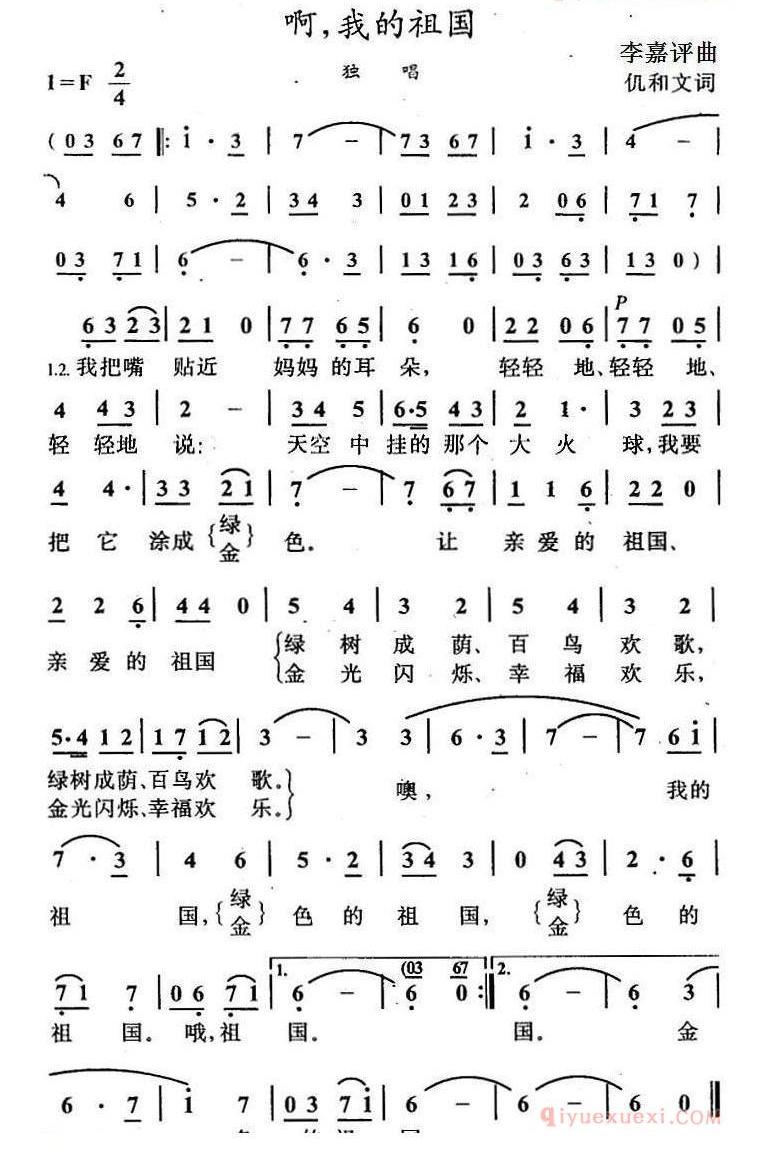 啊,我的祖国
李嘉评曲
1=F 2/4 独 唱 仉和文词
(03 67 ‖: i · 3 | 7 – | 73 67 | i · 3 | 4 – |
4 6 | 5 · 2 | 34 3 | 01 23 | 2 06 | 71 7 |
03 71 | 6 – | 6 · 3 | 13 16 | 03 63 | 13 0) |
P
63 23 | 21 0 | 77 65 | 6 0 | 22 06 | 77 05 |
1.2. 我把嘴 贴近 妈妈的耳 朵, 轻轻 地、轻轻 地、
4 43 | 2 – | 34 5 | 6·5 43 | 2 1· | 3 23 |
轻 轻地 说: 天空 中 挂的 那个 大 火 球,我要
4 4· | 33 21 | 7 – | 7 67 | 11 6 | 22 0 |
把 它 涂成 {绿 金} 色。 让 亲爱的 祖国、
2 2 6 | 44 0 | 5 4 | 3 2 | 5 4 | 3 2 |
亲 爱的 祖国 绿 树 成 荫、百 鸟 欢 歌,
金 光 闪 烁、幸 福 欢 乐,
5·4 12 | 17 12 | 3 – | 3 3 | 6 · 3 | 7 – | 7 6i |
绿树成荫、百鸟欢 歌。 噢, 我的
金光闪烁、幸福欢 乐。
7 · 3 | 4 6 | 5 · 2 | 34 3 | 0 43 | 2 · 6 |
祖 国, {绿 金} 色的 祖 国, {绿 金} 色 的
1. (03 67 2.
71 7 | 06 71 | 6 – | 6 0 :‖ 6 – | 6 3 |
祖 国。 哦,祖 国。 国。 金
6 · 7 | i 7 | 03 7i | 6 – | 6 – | 6 0 ‖
qiyuexuexi.com